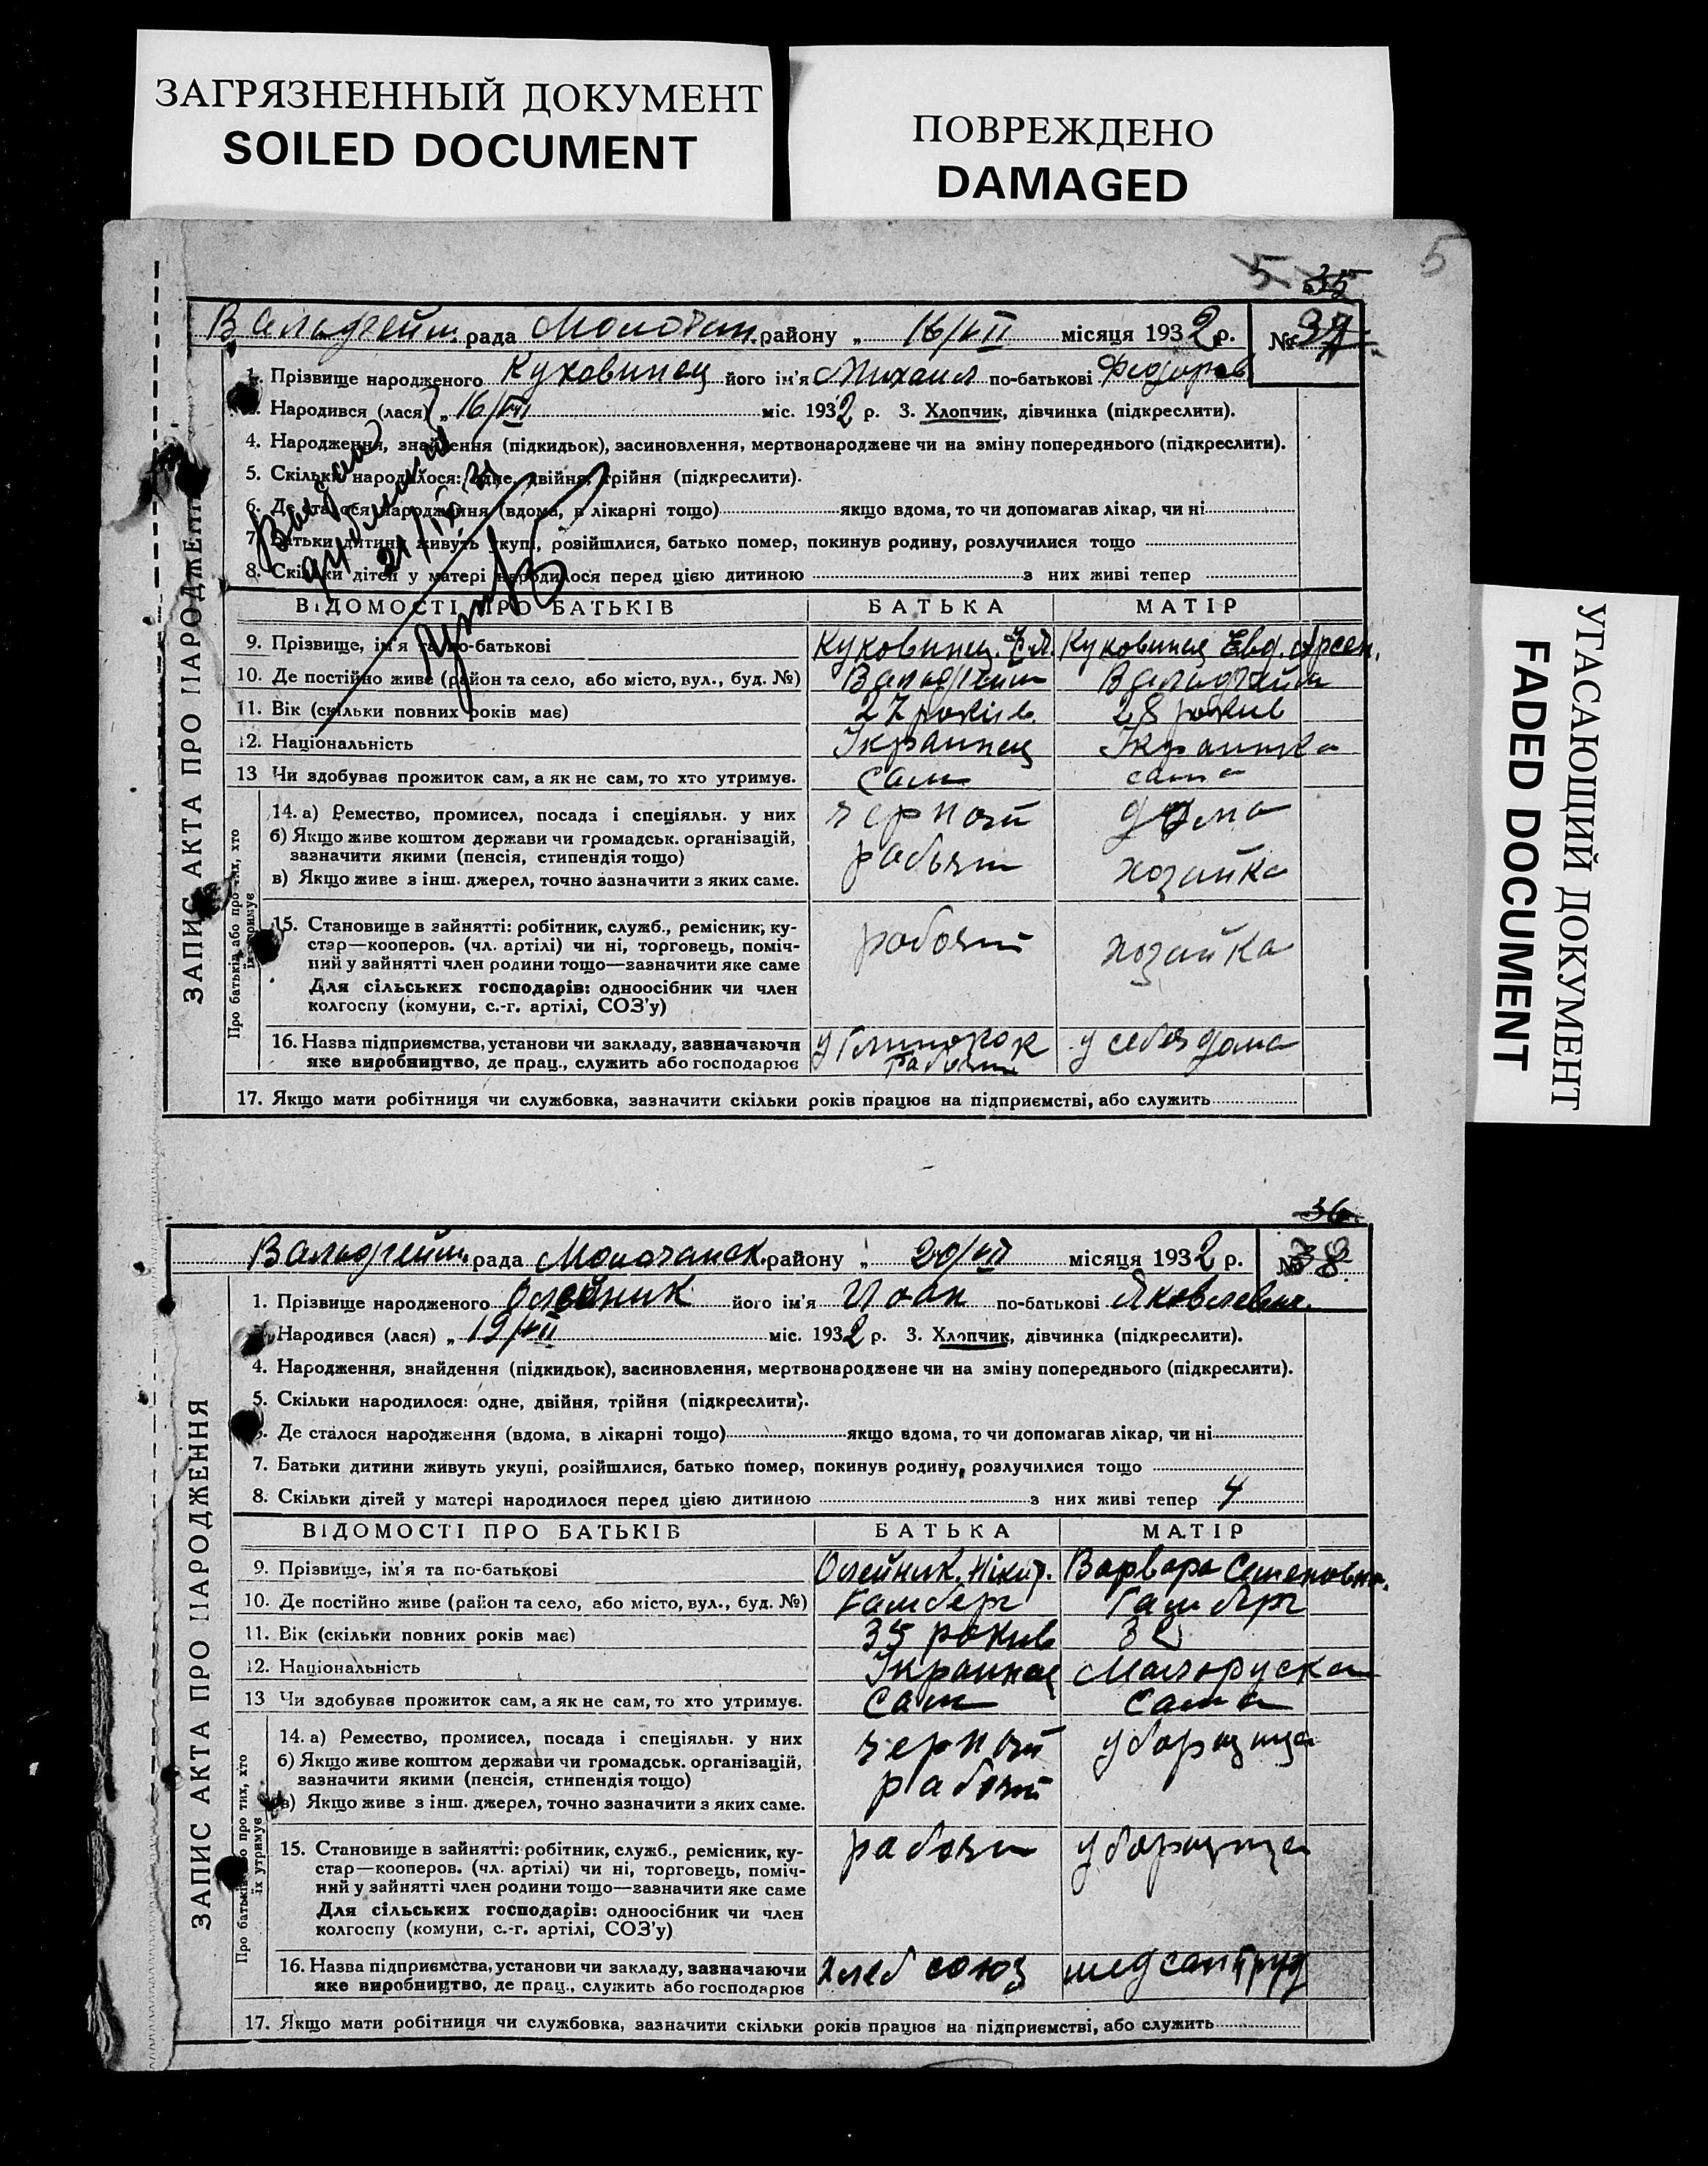 ЗАГРЯЗНЕННЫЙ ДОКУМЕНТ
SOILED DOCUMENT
ПОВРЕЖДЕНО
DAMAGED
УГАСАЮЩИЙ ДОКУМЕНТ
FADED DOCUMENT
5
5 35
Вальдгейм. рада Молочан. району „ 16/VII місяця 1932 р. № 37
ЗАПИС АКТА ПРО НАРОДЖЕННЯ
1. Прізвище народженого Куховинец його ім'я Михаил по-батькові Федоров
Народився (лася) „ 16/VII міс. 1932 р. 3. Хлопчик, дівчинка (підкреслити).
4. Народження, знайдення (підкидьок), засиновлення, мертвонароджене чи на зміну попереднього (підкреслити).
5. Скільки народилося: одне, двійня, трійня (підкреслити).
6. Де сталося народження (вдома, в лікарні тощо) якщо вдома, то чи допомагав лікар, чи ні
7. Батьки дитини живуть укупі, розійшлися, батько помер, покинув родину, розлучилися тощо
8. Скільки дітей у матері народилося перед цією дитиною з них живі тепер
ВІДОМОСТІ ПРО БАТЬКІВ БАТЬКА МАТІР
9. Прізвище, ім'я та по-батькові Куковинец. Куковинец Евд. Арсен.
10. Де постійно живе (район та село, або місто, вул., буд. №) Вальдгейм Вальдгейм
11. Вік (скільки повних років має) 27 рокив 28 рокив
12. Національність Украинец Украинка
13 Чи здобував прожиток сам, а як не сам, то хто утримує. сам сама
Про батьків або про тих, хто їх утримує
14. а) Ремество, промисел, посада і спеціяльн. у них черный дома
б) Якщо живе коштом держави чи громадськ. організацій,
зазначити якими (пенсія, стипендія тощо) рабочий хозайка
в) Якщо живе з інш. джерел, точно зазначити з яких саме.
15. Становище в зайнятті: робітник, служб., ремісник, ку-
стар—кооперов. (чл. артілі) чи ні, торговець, поміч- рабочий хозайка
ний у зайнятті член родини тощо—зазначити яке саме
Для сільських господарів: одноосібник чи член
колгоспу (комуни, с.-г. артілі, СОЗ'у)
16. Назва підприємства, установи чи закладу, зазначаючи у себя дома
яке виробництво, де прац., служить або господарює рабочий
17. Якщо мати робітниця чи службовка, зазначити скільки років працює на підприємстві, або служить
36
Вальдгейм. рада Молочанск. району „ 20/VII місяця 1932 р. № 38
ЗАПИС АКТА ПРО НАРОДЖЕННЯ
1. Прізвище народженого Олейник його ім'я Иоан по-батькові Яковлевич.
Народився (лася) „ 19/VII міс. 1932 р. 3. Хлопчик, дівчинка (підкреслити).
4. Народження, знайдення (підкидьок), засиновлення, мертвонароджене чи на зміну попереднього (підкреслити).
5. Скільки народилося: одне, двійня, трійня (підкреслити).
Де сталося народження (вдома, в лікарні тощо) якщо вдома, то чи допомагав лікар, чи ні
7. Батьки дитини живуть укупі, розійшлися, батько помер, покинув родину, розлучилися тощо
8. Скільки дітей у матері народилося перед цією дитиною з них живі тепер 4
ВІДОМОСТІ ПРО БАТЬКІВ БАТЬКА МАТІР
9. Прізвище, ім'я та по-батькові Олейник. Нікит. Варвара Семеновна.
10. Де постійно живе (район та село, або місто, вул., буд. №) Гамберг Гамберг
11. Вік (скільки повних років має) 35 рокив 32
12. Національність Украинец Малоруска
13 Чи здобував прожиток сам, а як не сам, то хто утримує. сам сама
Про батьків або про тих, хто їх утримує
14. а) Ремество, промисел, посада і спеціяльн. у них черный уборщица
б) Якщо живе коштом держави чи громадськ. організацій,
зазначити якими (пенсія, стипендія тощо) рабочий
в) Якщо живе з інш. джерел, точно зазначити з яких саме.
15. Становище в зайнятті: робітник, служб., ремісник, ку- рабочий уборщица
стар—кооперов. (чл. артілі) чи ні, торговець, поміч-
ний у зайнятті член родини тощо—зазначити яке саме
Для сільських господарів: одноосібник чи член
колгоспу (комуни, с.-г. артілі, СОЗ'у)
16. Назва підприємства, установи чи закладу, зазначаючи хлеб союз медсантруд
яке виробництво, де прац., служить або господарює
17. Якщо мати робітниця чи службовка, зазначити скільки років працює на підприємстві, або служить